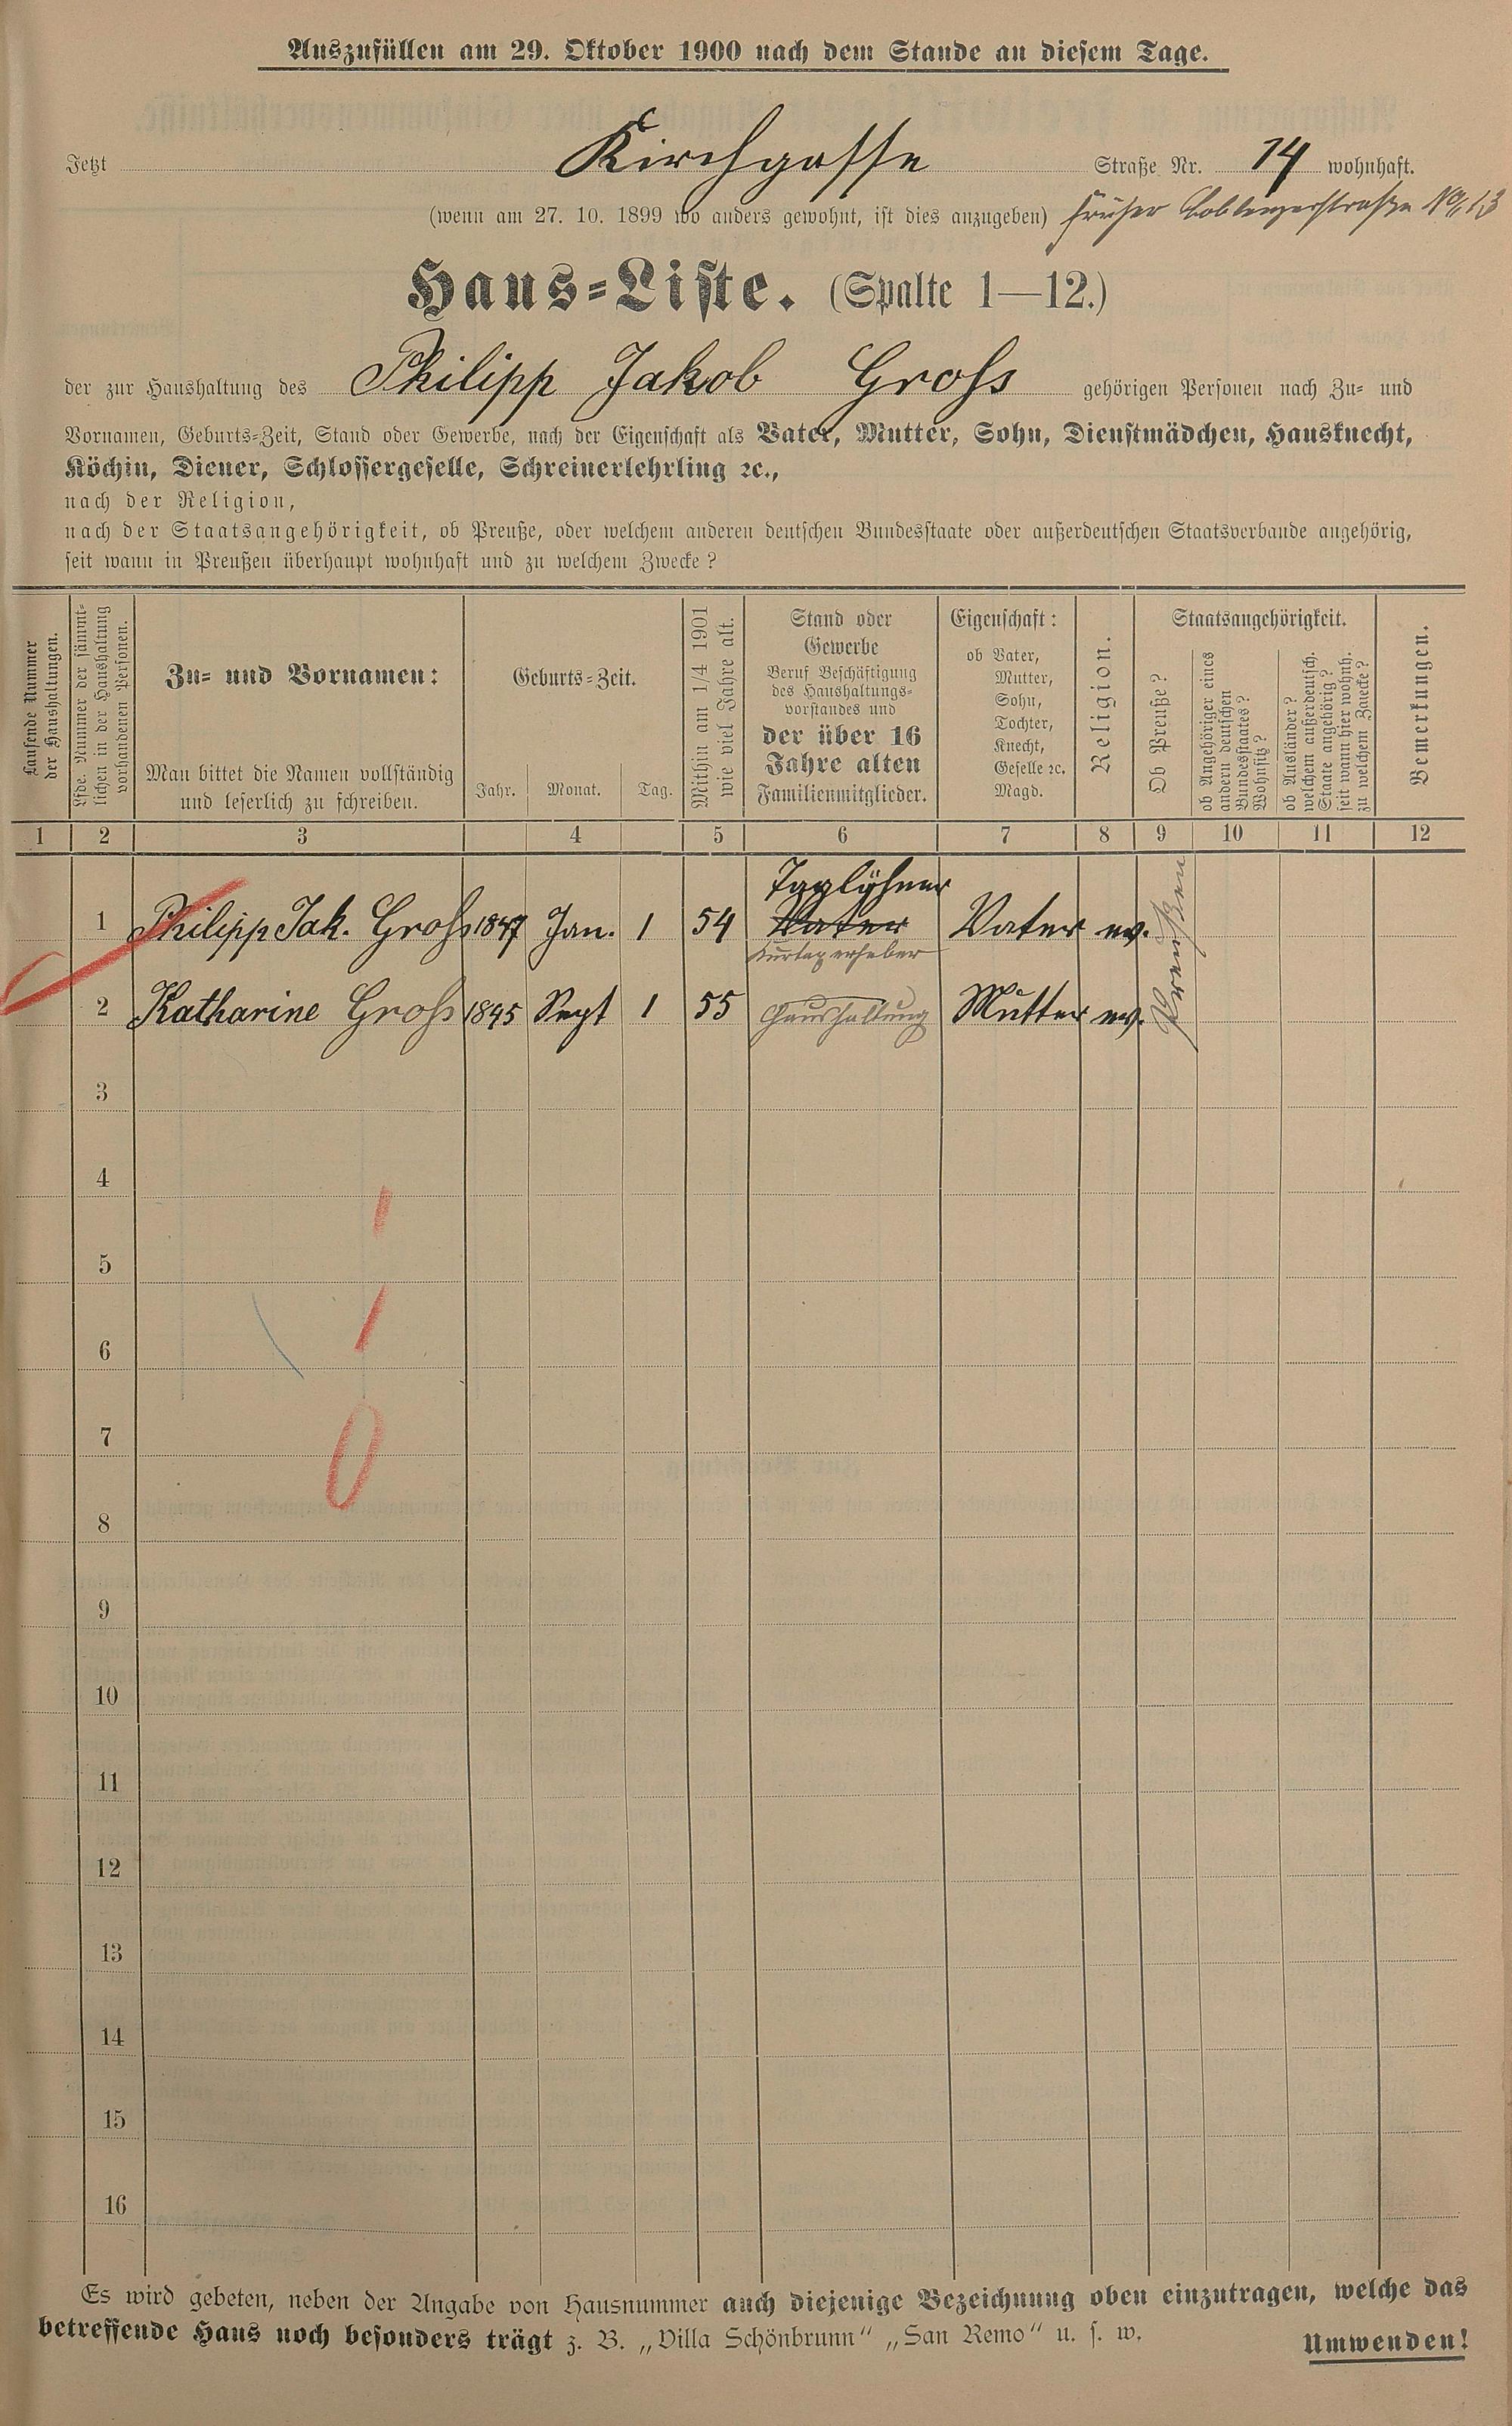 Auszufüllen am 29. Oktober 1900 nach dem Stande an diesem Tage.
Jetzt Kirchgasse Straße Nr. 14 wohnhaft.
(wenn am 27. 10. 1899 wo anders gewohnt, ist dies anzugeben) früher Coblenzerstraße No. 13
Haus=Liste. (Spalte 1—12.)
der zur Haushaltung des Philipp Jakob Gross gehörigen Personen nach Zu= und
Vornamen, Geburts=Zeit, Stand oder Gewerbe, nach der Eigenschaft als Vater, Mutter, Sohn, Dienstmädchen, Hausknecht,
Köchin, Diener, Schlossergeselle, Schreinerlehrling ꝛc.,
nach der Religion,
nach der Staatsangehörigkeit, ob Preuße, oder welchem anderen deutschen Bundesstaate oder außerdeutschen Staatsverbande angehörig,
seit wann in Preußen überhaupt wohnhaft und zu welchem Zwecke?
Laufende Nummer
der Haushaltungen.
Lfde. Nummer der sämmt=
lichen in der Haushaltung
vorhandenen Personen.
Zu= und Vornamen:
Man bittet die Namen vollständig
und leserlich zu schreiben.
Geburts=Zeit.
Jahr. Monat. Tag.
Mithin am 1/4 1901
wie viel Jahre alt.
Stand oder
Gewerbe
Beruf Beschäftigung
des Haushaltungs=
vorstandes und
der über 16
Jahre alten
Familienmitglieder.
Eigenschaft:
ob Vater,
Mutter,
Sohn,
Tochter,
Knecht,
Geselle ꝛc.
Magd.
Religion.
Staatsangehörigkeit.
Ob Preuße?
ob Angehöriger eines
andern deutschen
Bundesstaates?
Wohnsitz?
ob Ausländer?
welchem außerdeutsch.
Staate angehörig?
seit wann hier wohnh.
zu welchem Zwecke?
Bemerkungen.
1 2 3 4 5 6 7 8 9 10 11 12
Taglöhner
1 Philipp Jak. Gross 1847 Jan. 1 54 Vater Vater ev. Preußen
Kurtaxerheber
2 Katharine Gross 1845 Sept 1 55 Haushaltung Mutter ev.
3
4
5
6
7
8
9
10
11
12
13
14
15
16
Es wird gebeten, neben der Angabe von Hausnummer auch diejenige Bezeichnung oben einzutragen, welche das
betreffende Haus noch besonders trägt z. B. „Villa Schönbrunn“ „San Remo“ u. s. w. Umwenden!